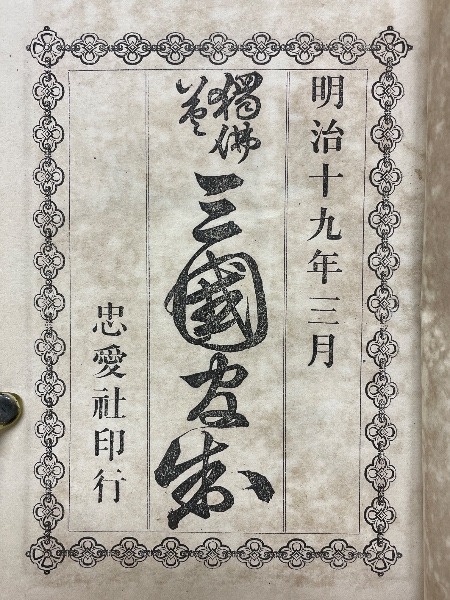 明治十九年三月
獨佛
英
三國官制
忠愛社印行